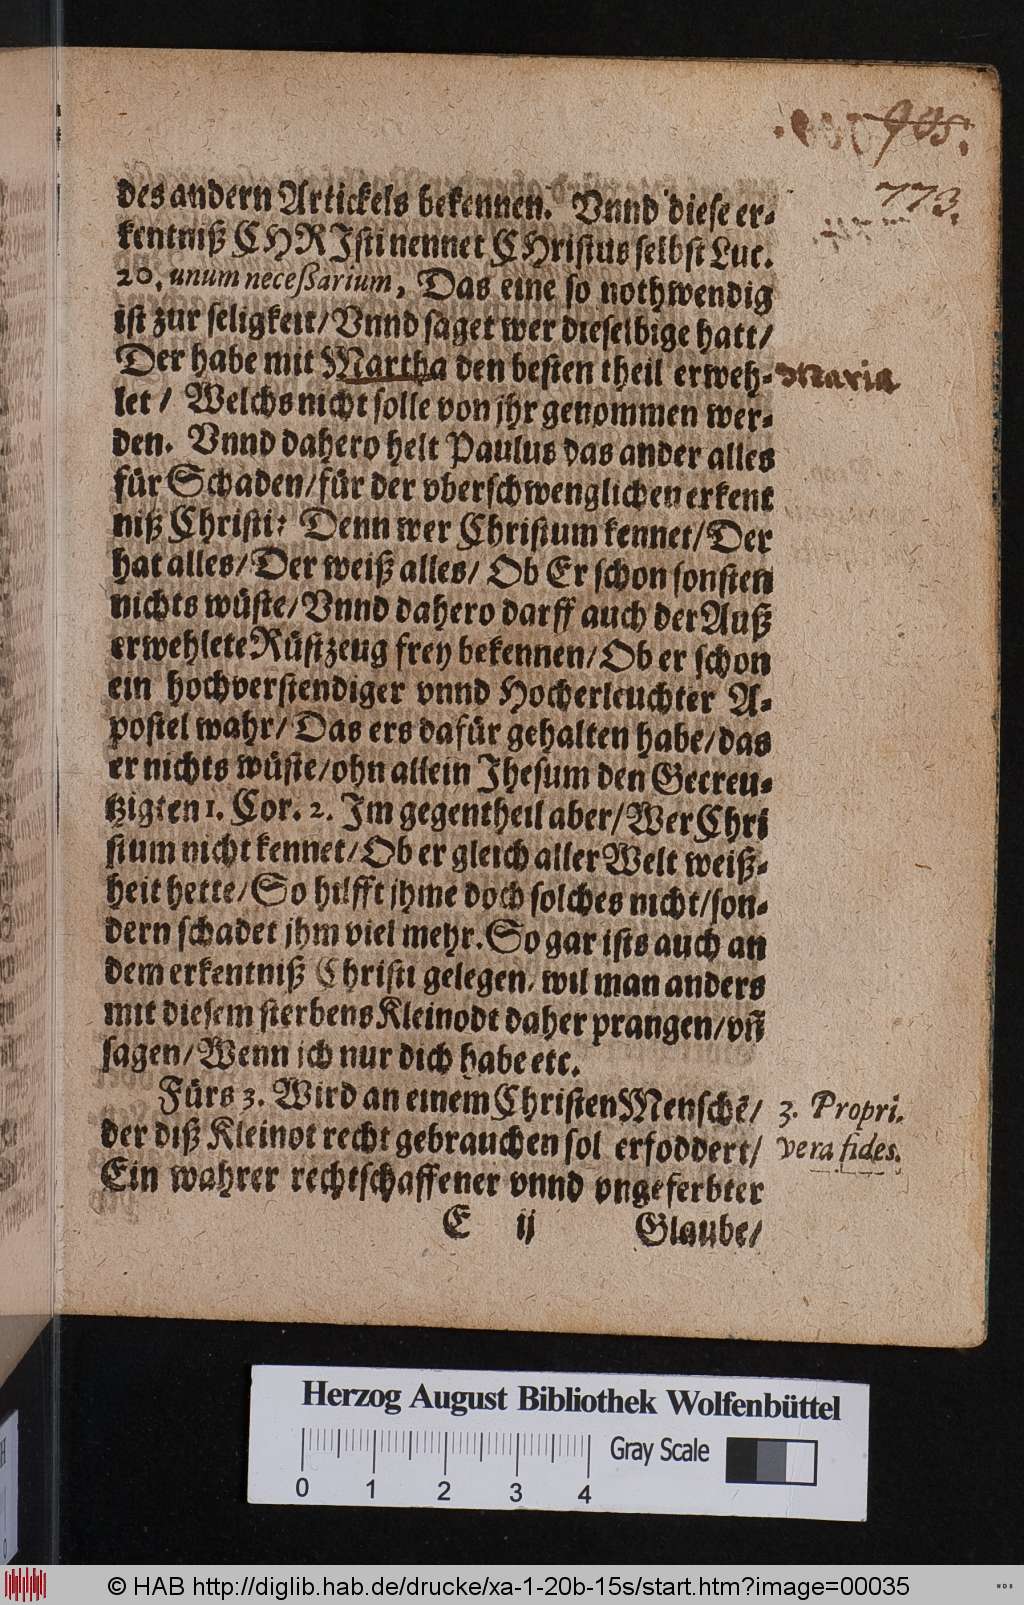 905.
773.
des andern Artickels bekennen. Vnnd diese er-
kentniß CHRJsti nennet CHristus selbst Luc.
20. unum neceßarium, Das eine so nothwendig
ist zur seligkeit/ Vnnd saget wer dieselbige hatt/
Der habe mit Martha den besten theil erweh-
Maria
let/ Welchs nicht solle von jhr genommen wer-
den. Vnnd dahero helt Paulus das ander alles
für Schaden/ für der vberschwenglichen erkent
niß Christi: Denn wer Christum kennet/ Der
hat alles/ Der weiß alles/ Ob Er schon sonsten
nichts wüste/ Vnnd dahero darff auch der Auß
erwehlete Rüstzeug frey bekennen/ Ob er schon
ein hochverstendiger vnnd Hocherleuchter A-
postel wahr/ Das ers dafür gehalten habe/ das
er nichts wüste/ ohn allein Jhesum den Gecreu-
tzigten 1. Cor. 2. Jm gegentheil aber/ Wer Chri
stum nicht kennet/ Ob er gleich aller Welt weiß-
heit hette/ So hilfft jhme doch solches nicht/ son-
dern schadet jhm viel mehr. So gar ists auch an
dem erkentniß Christi gelegen, wil man anders
mit diesem sterbens Kleinodt daher prangen/ vñ
sagen/ Wenn ich nur dich habe etc.
Fürs 3. Wird an einem Christen Menschẽ/
3. Propri.
der diß Kleinot recht gebrauchen sol erfoddert/
vera fides.
Ein wahrer rechtschaffener vnnd vngeferbter
E ij Glaube/
Herzog August Bibliothek Wolfenbüttel
Gray Scale
0 1 2 3 4
© HAB http://diglib.hab.de/drucke/xa-1-20b-15s/start.htm?image=00035